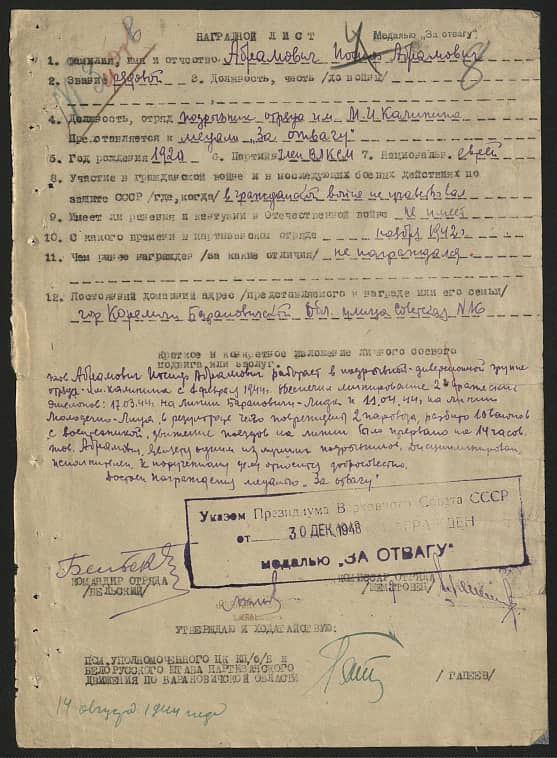 НАГРАДНОЙ ЛИСТ
Медалью „За отвагу"
1. Фамилия, имя и отчество Абрамович Иосиф Абрамович
2. Звание рядовой 3. Должность, часть /до войны/
4. Должность, отряд подрывник отряда им. М.И Калинина
Представляется к медали „За отвагу"
5. Год рождения 1920 6. Партийн. член ВЛКСМ 7. Националь. еврей
8. Участие в гражданской войне и в последующих боевых действиях по
защите СССР /где, когда/ в гражданской войне не участвовал
9. Имеет ли ранения и контузии в Отечественной войне не имеет
10. С какого времени в партизанском отряде ноябрь 1942г
11. Чем ранее награжден /за какие отличия/ не награждался
12. Постоянный домашний адрес /представляемого к награде или его семьи/
гор Кореличи Барановичской Обл. улица Советская №16
Краткое и конкретное изложение личного боевого
подвига или заслуг.
тов Абрамович Иосиф Абрамович работает в подрывной-диверсионной группе
отряда им. Калинина с февраля 1944г. Обеспечил минирование 2х вражеских
эшелонов: 17.03.44г на линии Барановичи-Лида и 11.04.44г, на линии
Молодечно-Лида, в результате чего повреждено 2 паровоза, разбито 10 вагонов
с воен. техникой, движение поездов на линии было прервано на 14 часов.
тов. Абрамович является одним из лучших подрывников. Дисциплинирован
исполнителен. К порученному делу относится добросовестно.
Достоин награждения медалью „За отвагу"
Указом Президиума Верховного Совета СССР
от 30 ДЕК 1948 НАГРАЖДЕН
медалью „ЗА ОТВАГУ"
КОМАНДИР ОТРЯДА
/БЕЛЬСКИЙ/
КОМИССАР ОТРЯДА
УТВЕРЖДАЮ И ХОДАТАЙСТВУЮ:
ПОМ.УПОЛНОМОЧЕННОГО ЦК КП/б/Б и
БЕЛОРУССКОГО ШТАБА ПАРТИЗАНСКОГО
ДВИЖЕНИЯ ПО БАРАНОВИЧСКОЙ ОБЛАСТИ
/ГАПЕЕВ/
14 августа 1944 года